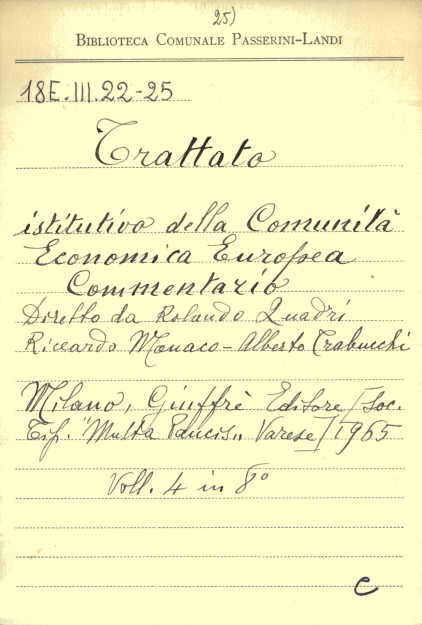 25)
BIBLIOTECA COMUNALE PASSERINI-LANDI
18E.III.22-25
Trattato
istitutivo della Comunità
Economica Europea
Commentario
Diretto da Rolando Quadri
Riccardo Monaco - Alberto Trabucchi
Milano, Giuffrè Editore [Soc.
Tip. "Multa Paucis„ Varese] 1965
Voll. 4 in 8°
C